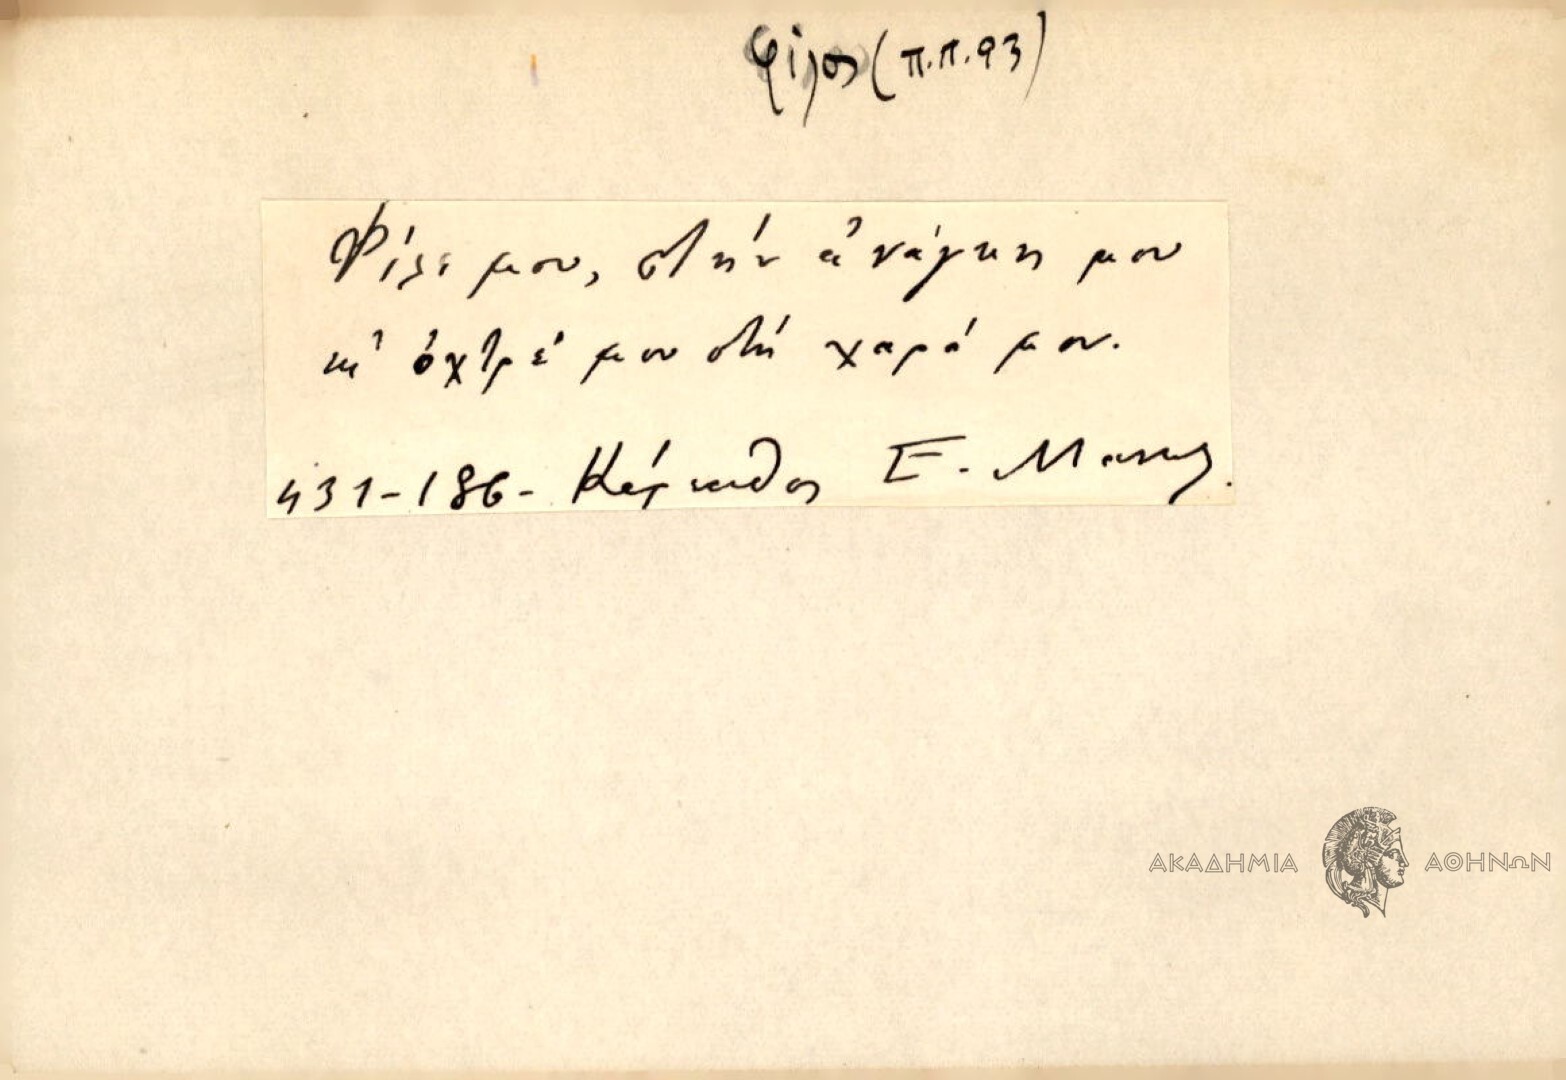 φίλος (π.π.93)
Φίλε μου, στήν ἀνάγκη μου
κι' ὀχτρέ μου στή χαρά μου.
431-186- Κάρπαθος Ε. Μανωλ.
ΑΚΑΔΗΜΙΑ ΑΘΗΝΩΝ